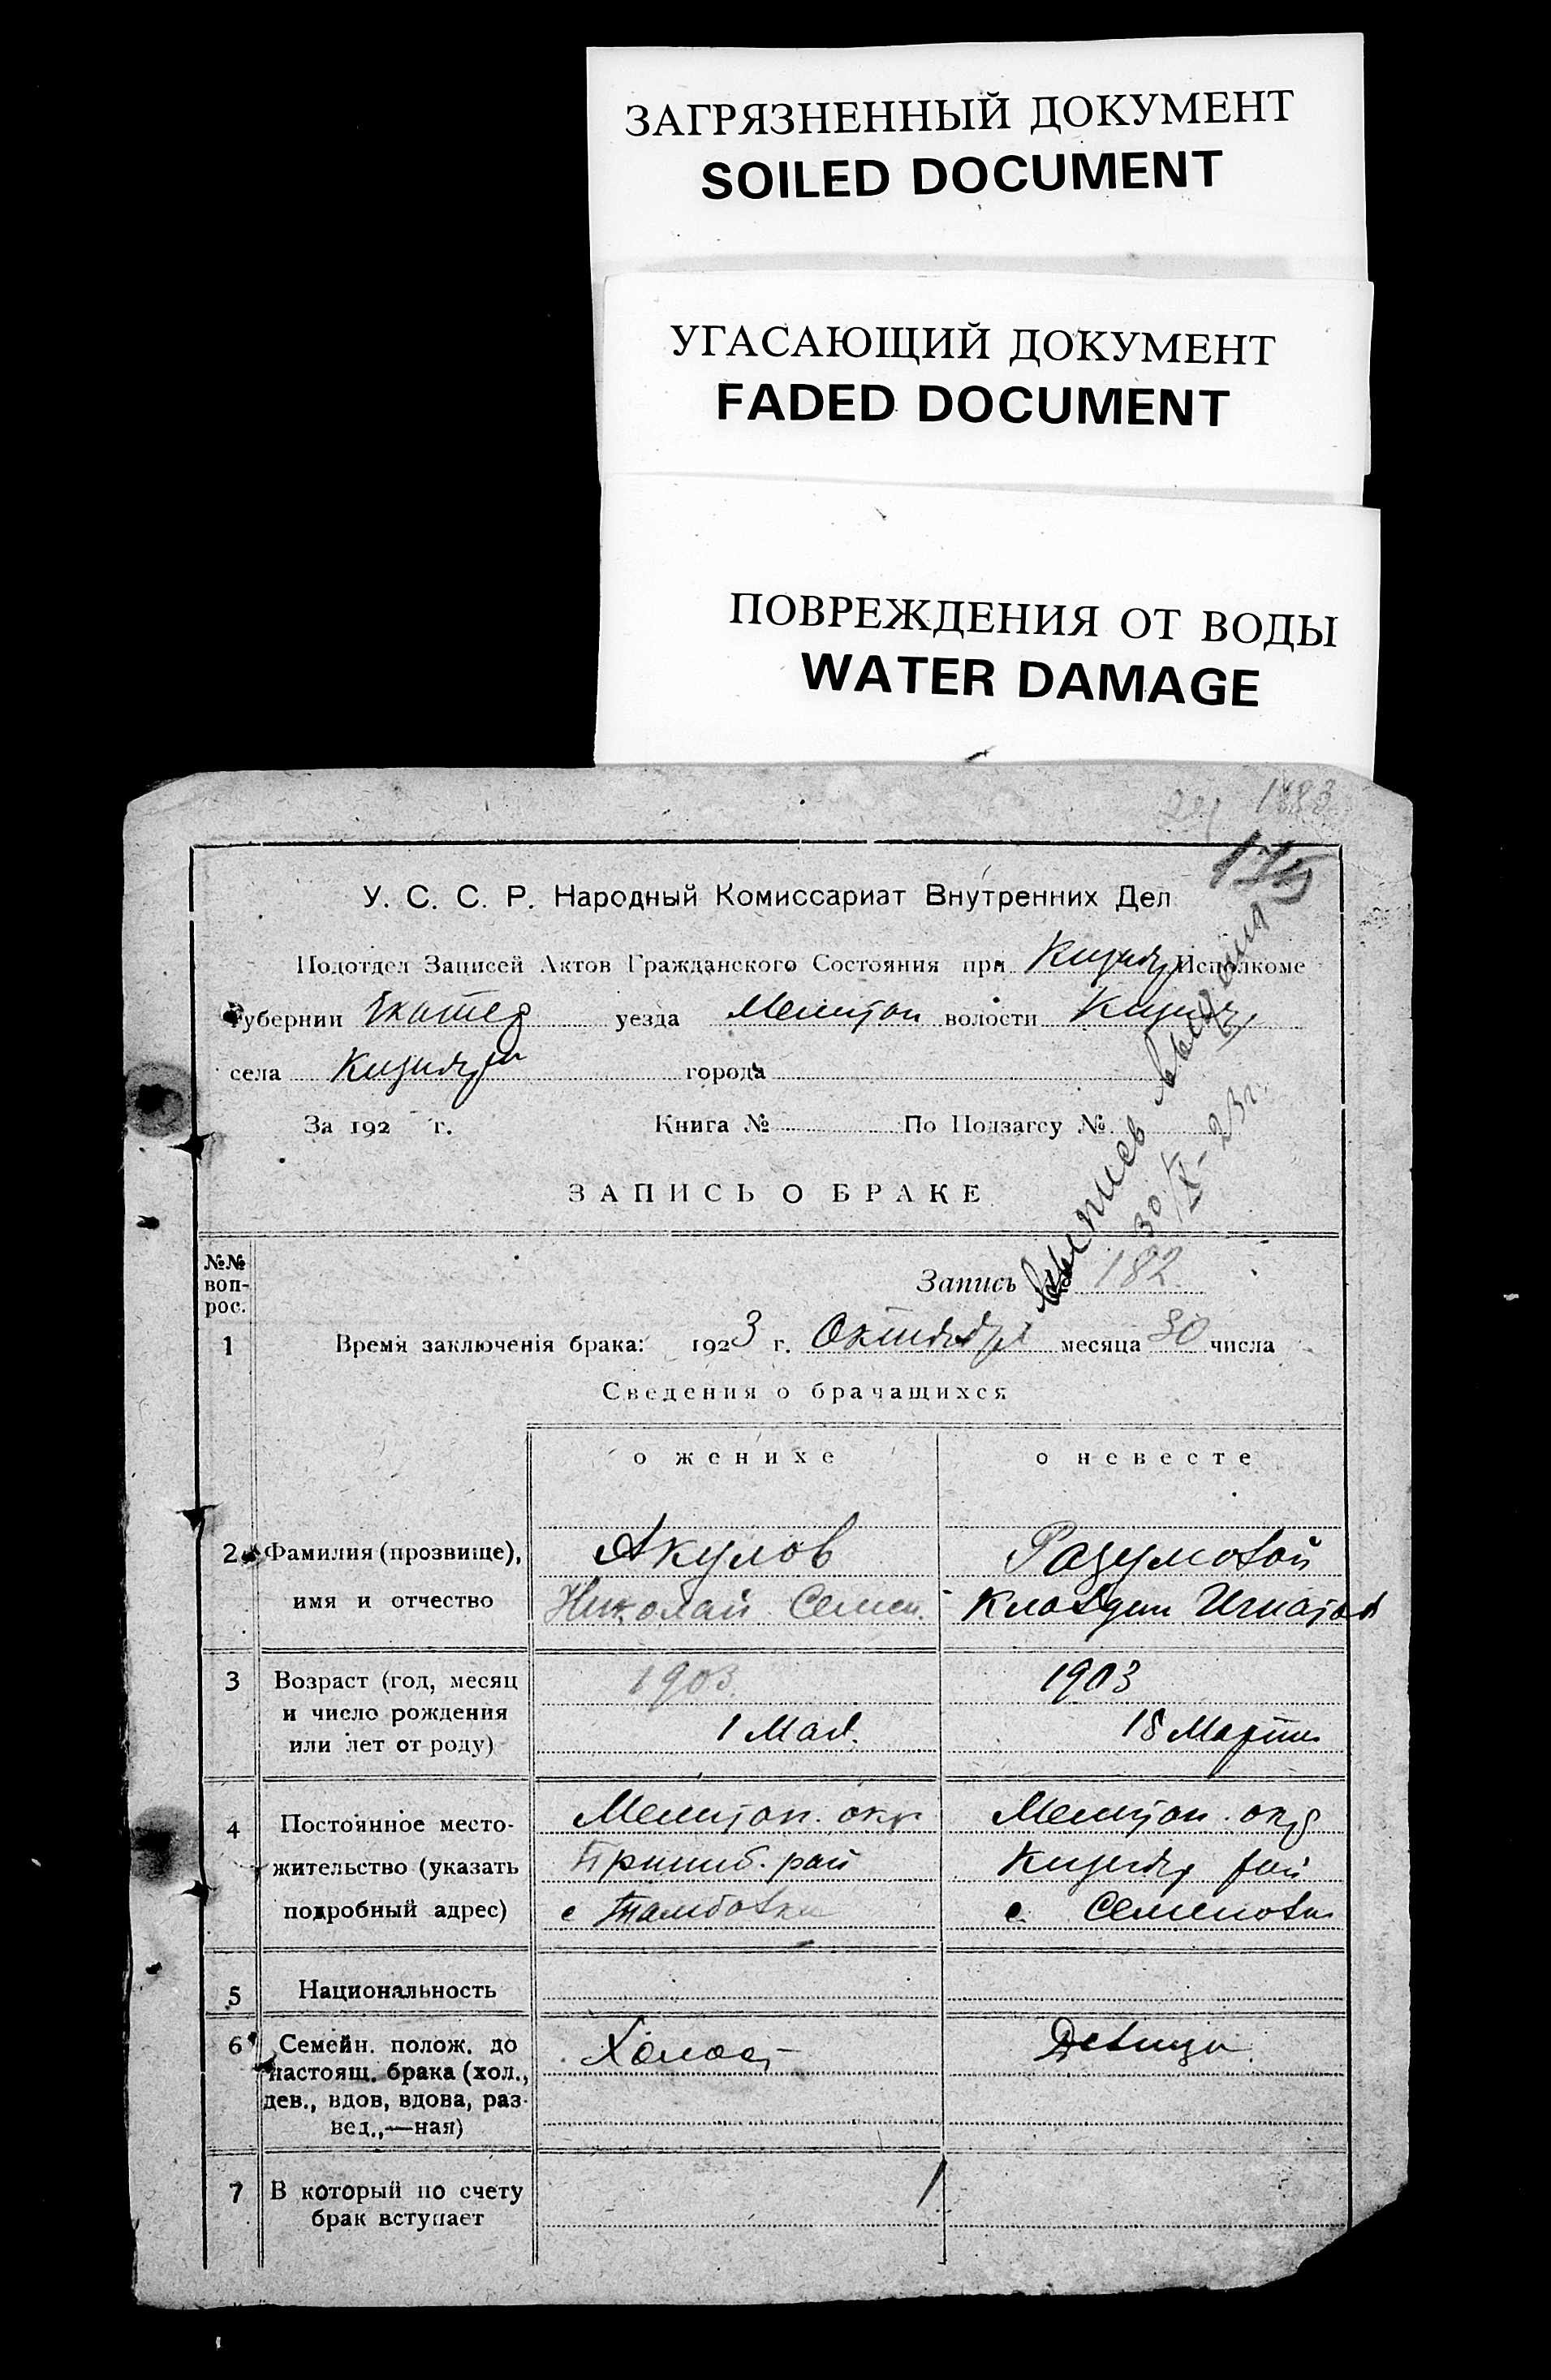 ЗАГРЯЗНЕННЫЙ ДОКУМЕНТ
SOILED DOCUMENT
УГАСАЮЩИЙ ДОКУМЕНТ
FADED DOCUMENT
ПОВРЕЖДЕНИЯ ОТ ВОДЫ
WATER DAMAGE
У. С. С. Р. Народный Комиссариат Внутренних Дел
Подотдел Записей Актов Гражданского Состояния при Исполкоме
Губернии Екатер уезда Мелитоп волости
села города
За 192 г. Книга № По Подзагсу №
выпись выдана
30/X-23г.
ЗАПИСЬ О БРАКЕ
№№ воп-
рос.
Запись 182
1 Время заключенія брака: 1923 г. Октября месяца 30 числа
Сведения о брачащихся
о женихе о невесте
2 Фамилия (прозвище), Акулов
имя и отчество Николай Семен. Клавдия Игнатов
3 Возраст (год, месяц 1903 1903
и число рождения
или лет от роду) 1 Мая. 18 Марта
4 Постоянное место- Мелитоп. окр Мелитоп. окр
жительство (указать Пришиб. рай рай
подробный адрес) с Тамбовка с. Семеновка
5 Национальность
6 Семейн. полож. до Холост Девица
настоящ. брака (хол.,
дев., вдов, вдова, раз-
вед.,—ная)
7 В который по счету 1
брак вступает